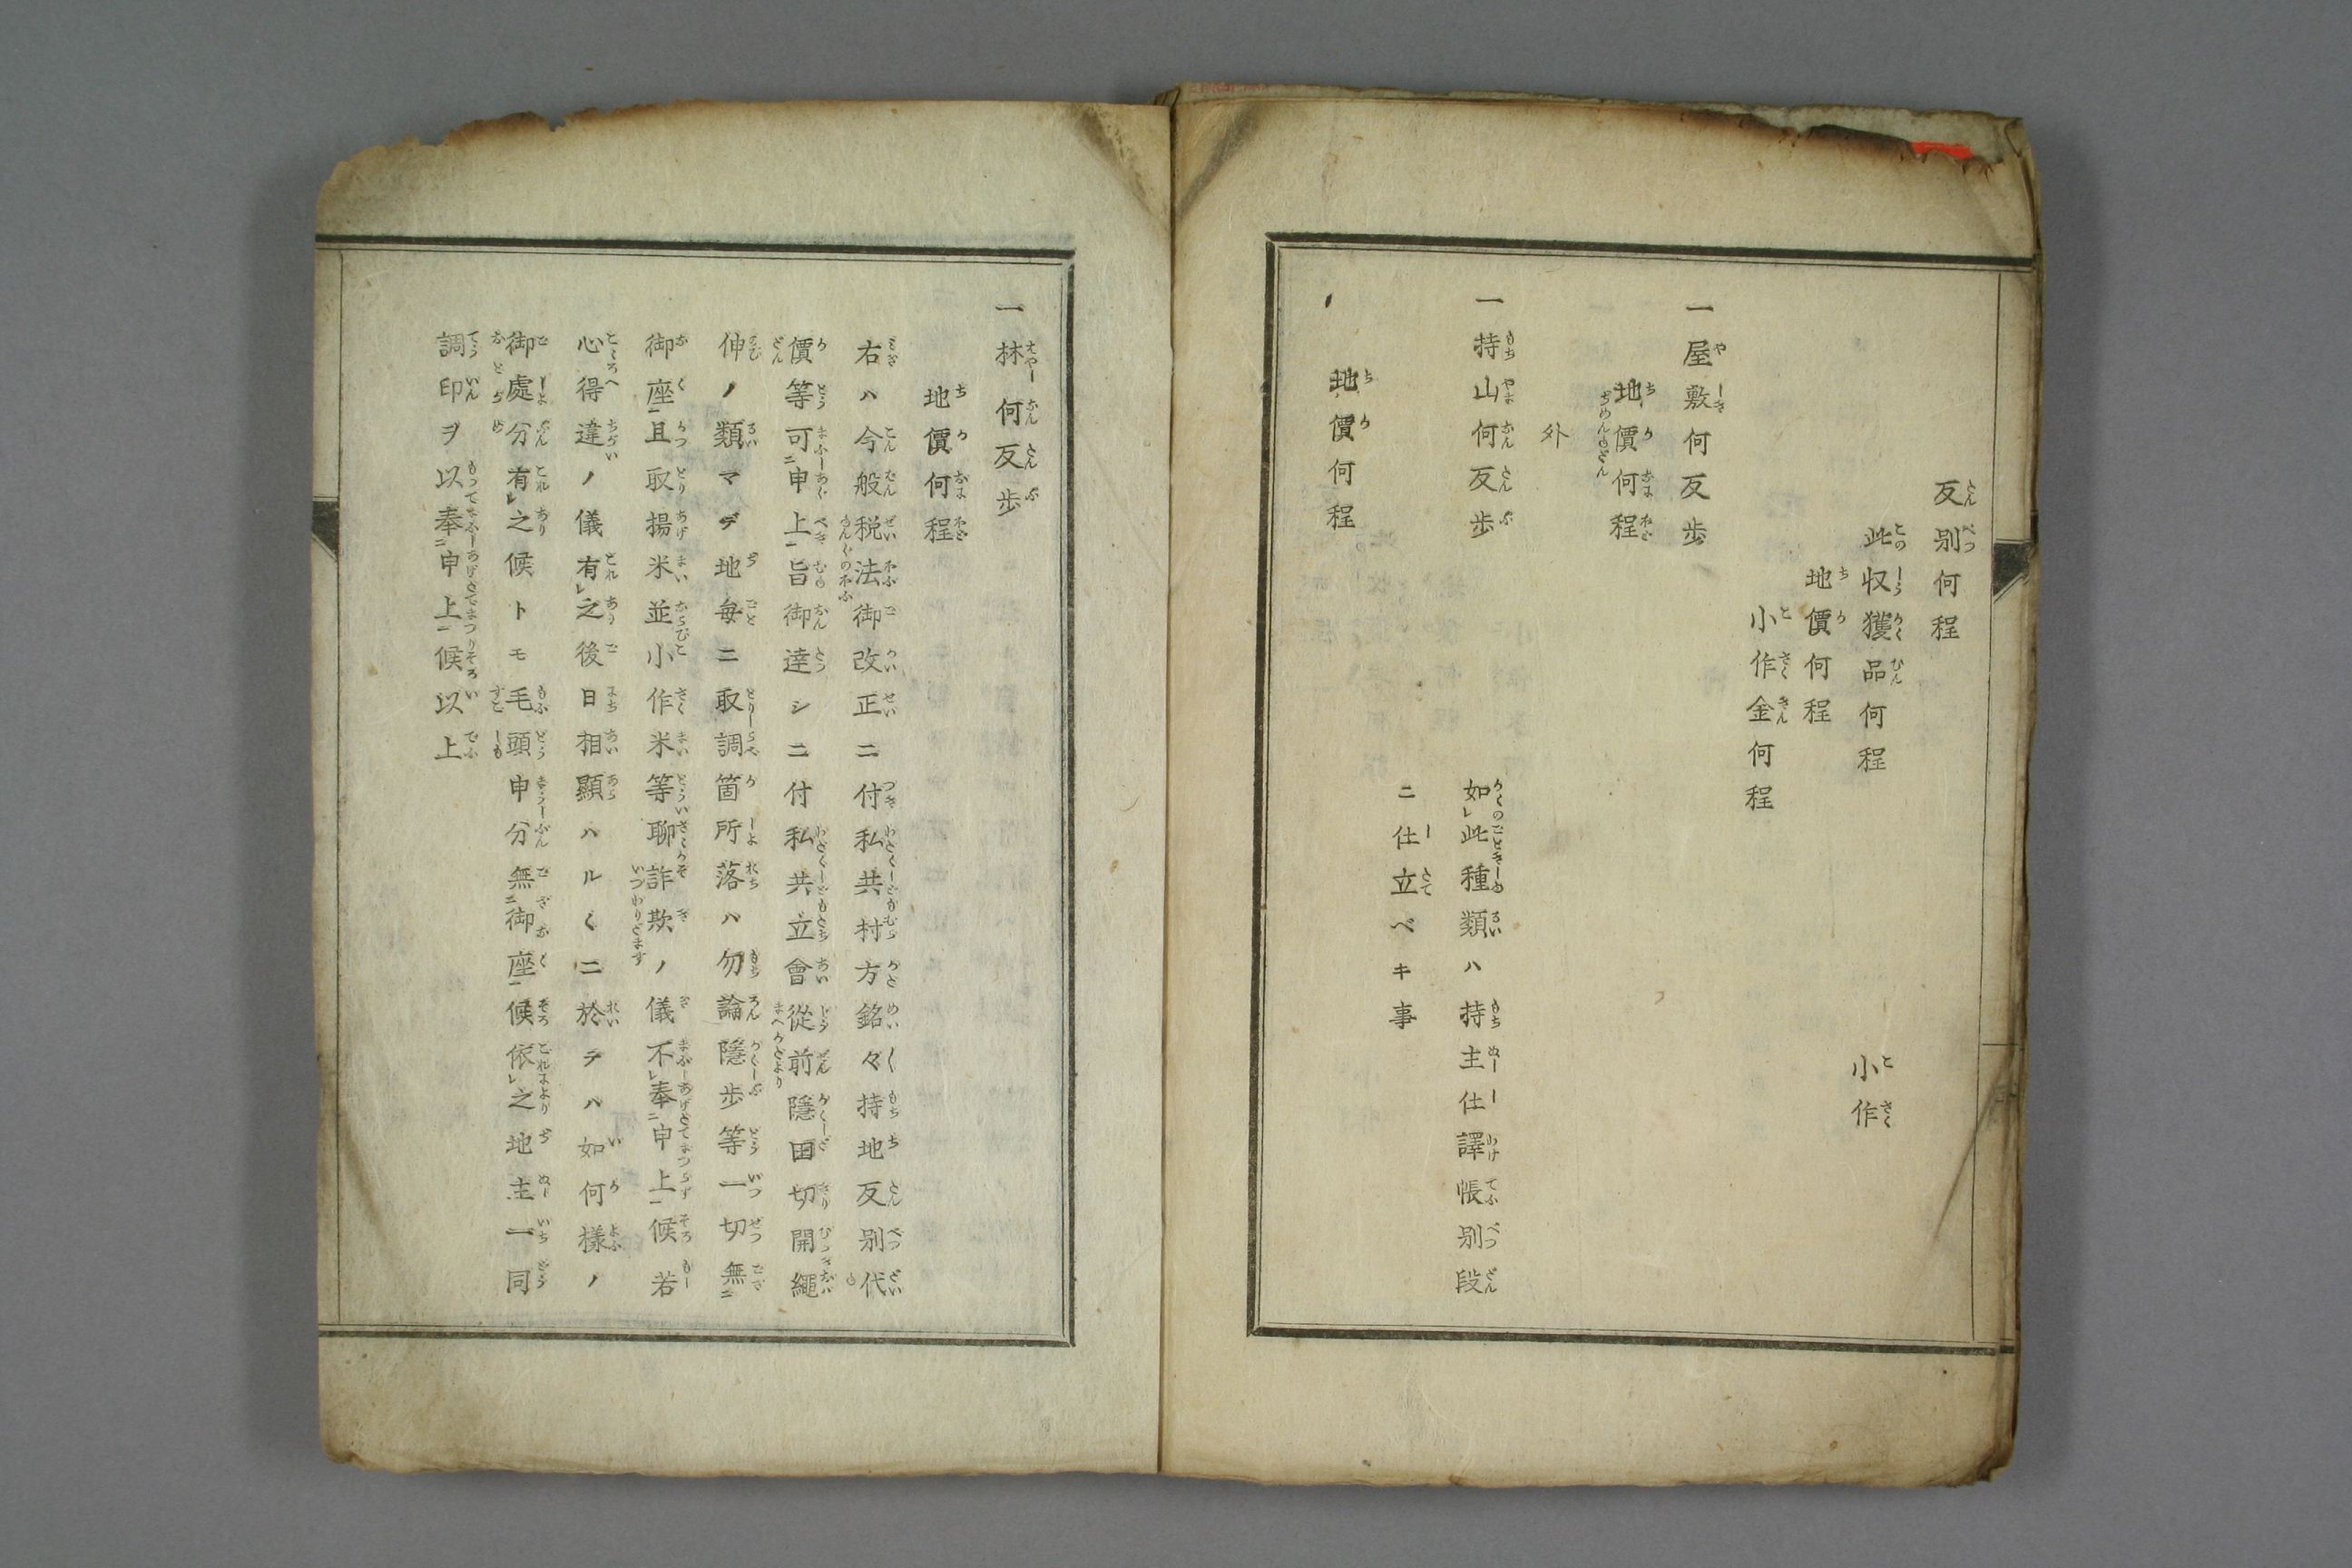 反別何程
此収獲品何程　小作
地價何程
小作金何程
一屋敷何反歩
地價何程
外
一持山何反歩　如レ此種類ハ持主仕譯帳別段
ニ仕立ベキ事
地價何程
一林何反歩
地價何程
右ハ今般税法御改正ニ付私共村方銘々持地反別代
價等可ニ申上一旨御達シニ付私共立會從前隱田切開繩
伸ノ類マデ地毎ニ取調箇所落ハ勿論隱歩等一切無ニ
御座一且取揚米並小作米等聊詐欺ノ儀不レ奉ニ申上一候若
心得違ノ儀有レ之後日相顯ハルヽニ於テハ如何樣ノ
御處分有レ之候トモ毛頭申分無ニ御座一候依レ之地主一同
調印ヲ以奉ニ申上一候以上